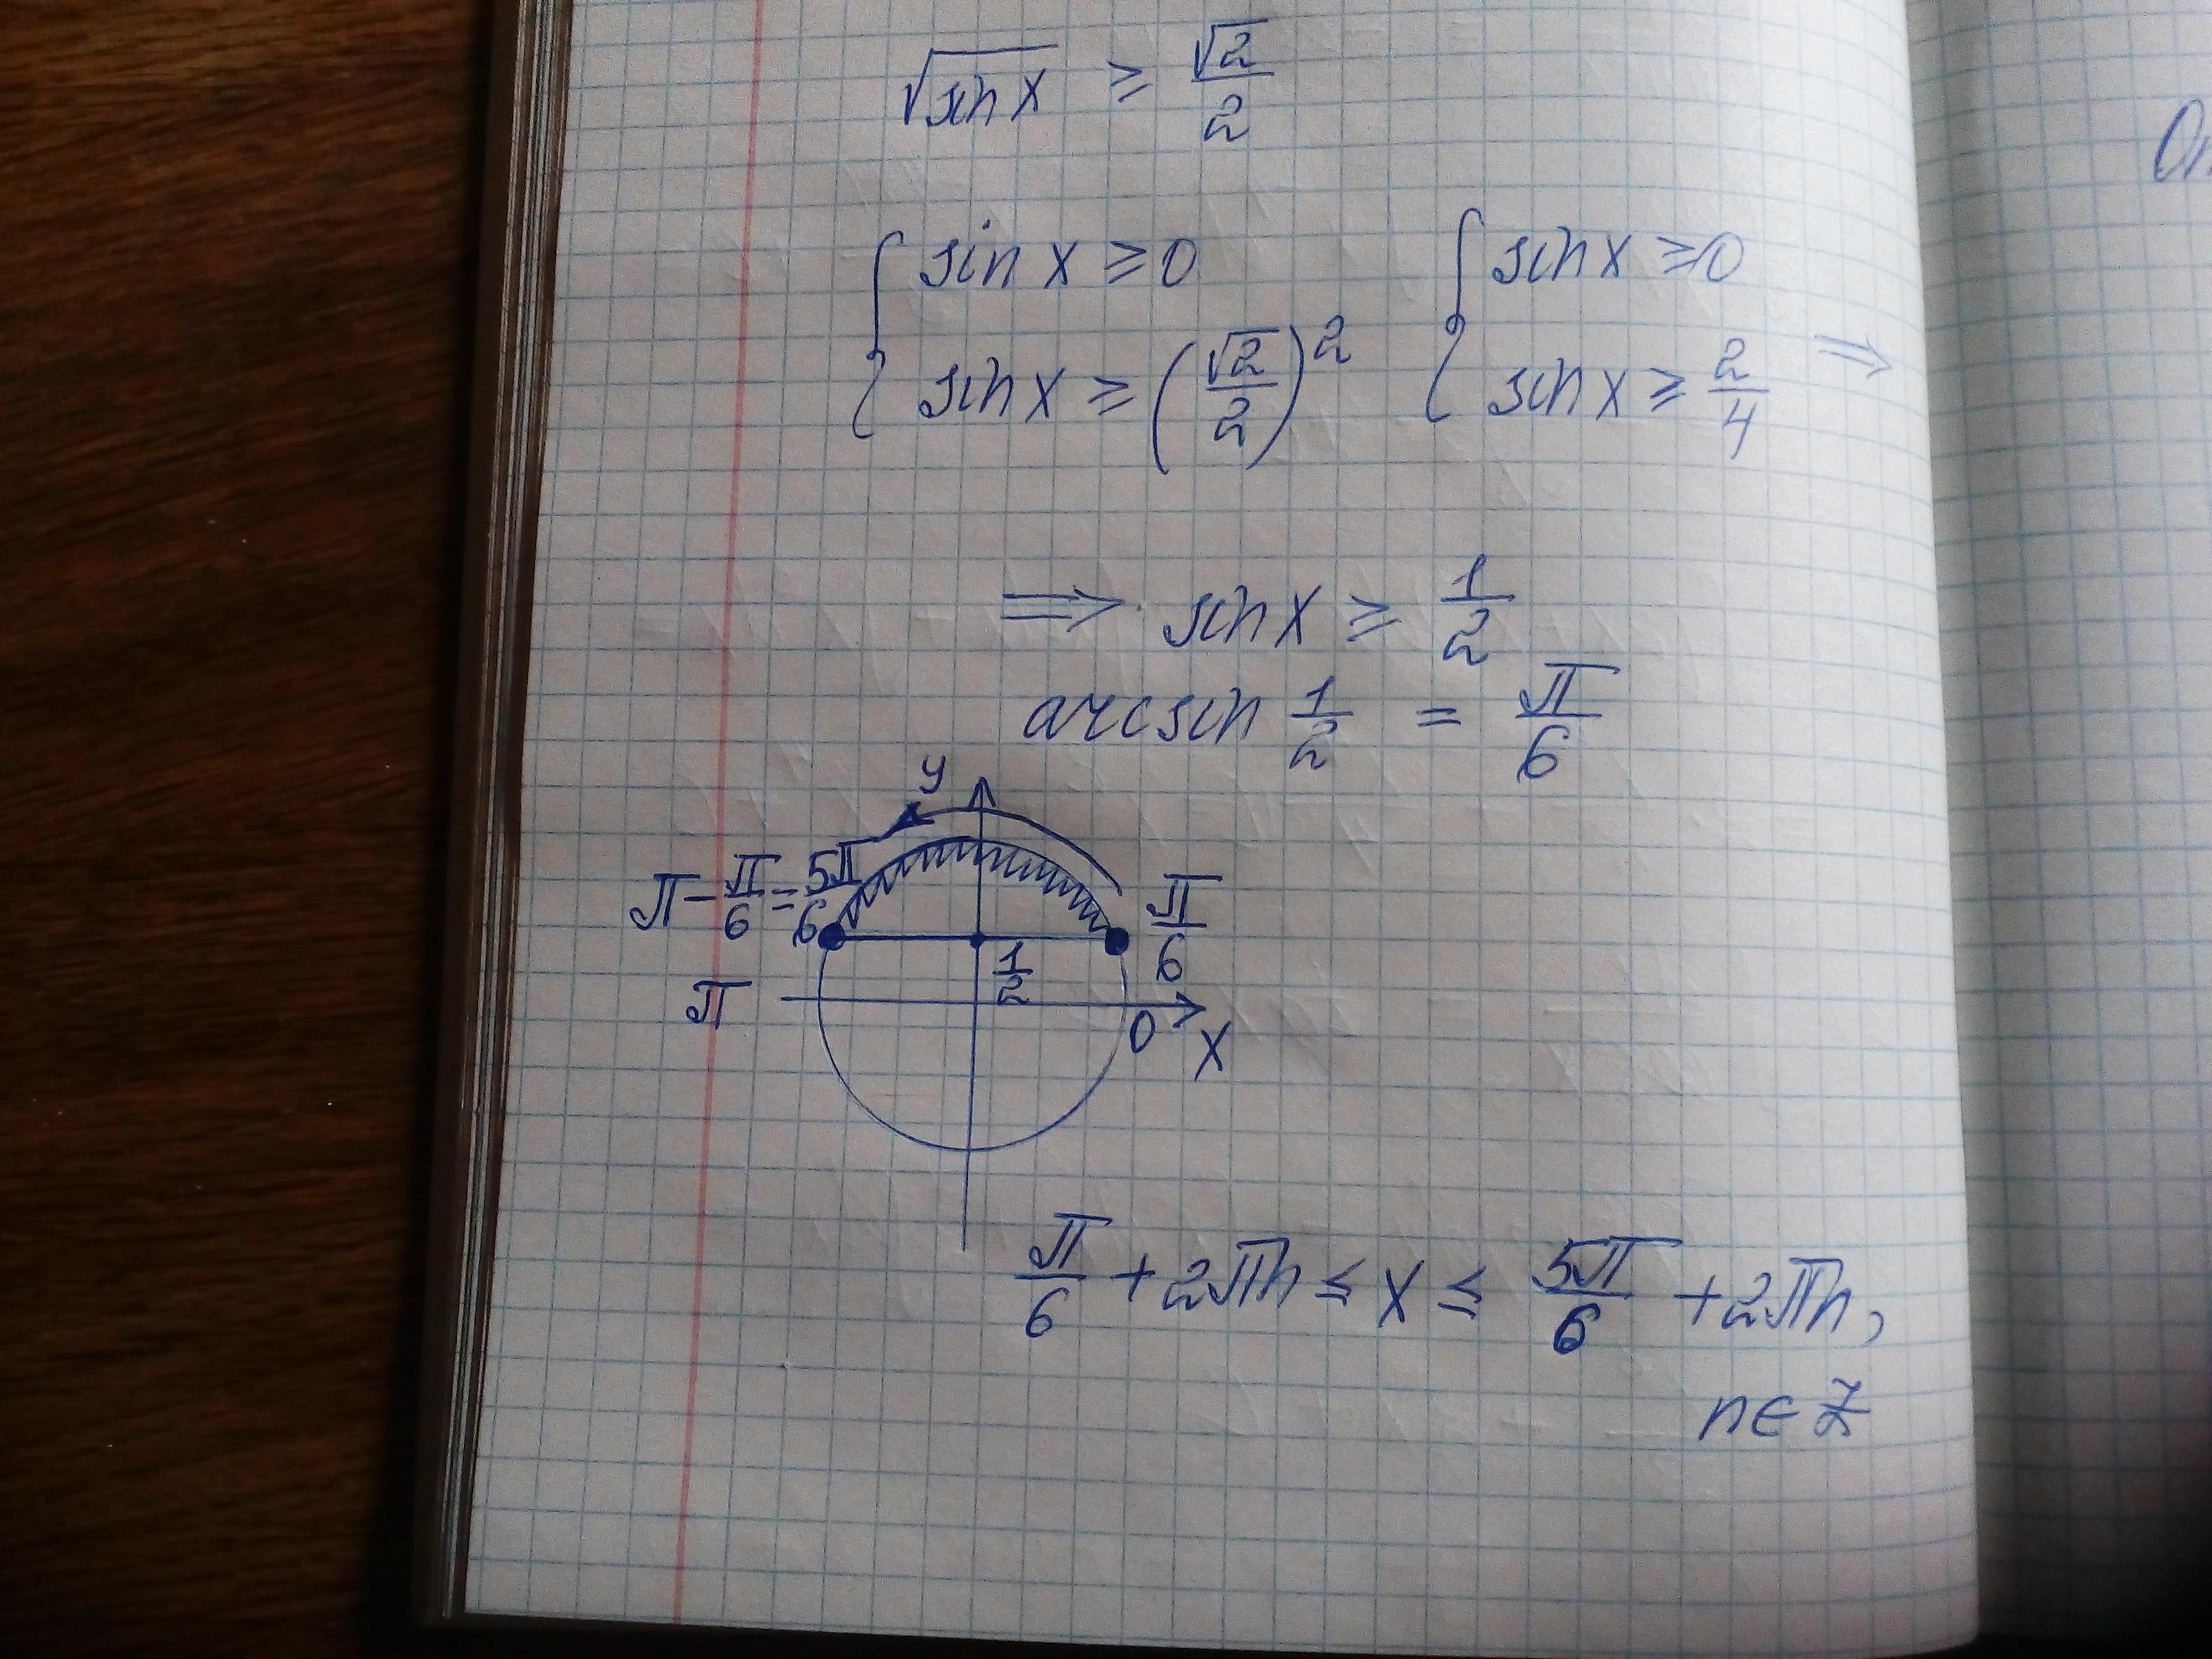 √sin x ≥ √2/2
{ sin x ≥ 0 { sin x ≥ 0
{ sin x ≥ (√2/2)² { sin x ≥ 2/4 ⇒
⇒ sin x ≥ 1/2
arcsin 1/2 = π/6
y
π - π/6 = 5π/6 π/6
1/2
π 0 x
π/6 + 2πn ≤ x ≤ 5π/6 + 2πn,
n ∈ Z